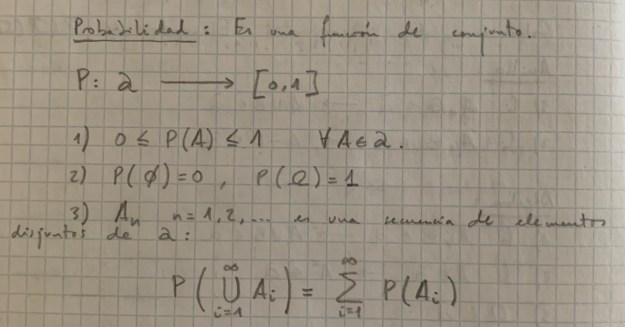 Probabilidad : Es una función de conjunto.
P: a ⟶ [0,1]
1) 0 ≤ P(A) ≤ 1 ∀ A ∈ a.
2) P(∅)=0 , P(Ω)=1
3) Aₙ n=1,2,... es una secuencia de elementos
disjuntos de a :
P( ⋃_{i=1}^{∞} Aᵢ ) = ∑_{i=1}^{∞} P(Aᵢ)